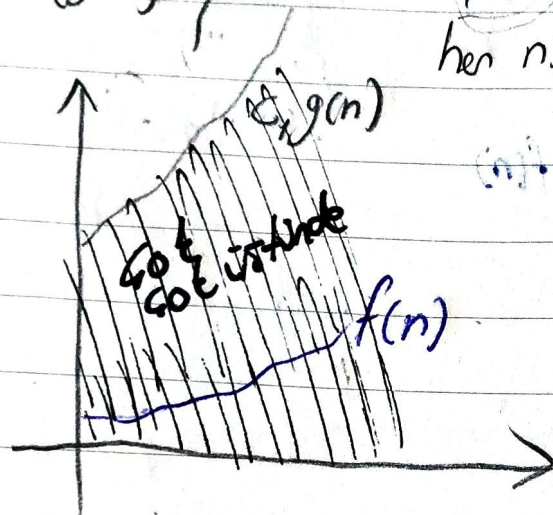 her n.
c, g(n)
(n).
çok
çok üstünde
f(n)